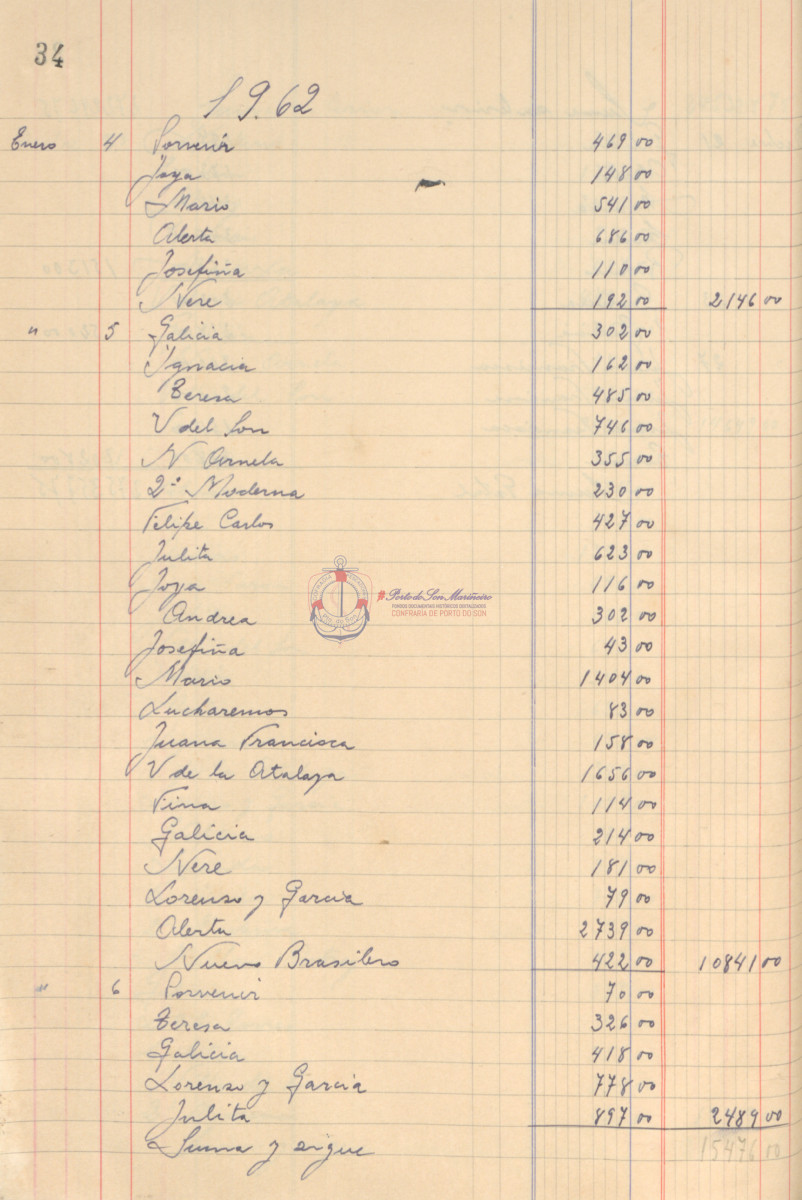 34
1962
Enero 4 Porvenir 469 00
Joya 148 00
Mario 541 00
Alerta 686 00
Josefiña 110 00
Nere 192 00 2146 00
" 5 Galicia 302 00
Ignacia 162 00
Teresa 485 00
V del Son 746 00
N Arnela 355 00
2ª Moderna 230 00
Felipe Carlos 427 00
Julita 623 00
Joya 116 00
#PortodoSonMariñeiro
FONDOS DOCUMENTAIS HISTÓRICOS DIXITALIZADOS
CONFRARÍA DE PORTO DO SON
Andrea 302 00
Josefiña 43 00
Mario 1404 00
Lucharemos 83 00
Juana Francisca 158 00
V de la Atalaya 1656 00
Fina 114 00
Galicia 214 00
Nere 181 00
Lorenzo y Garcia 79 00
Alerta 2739 00
Nuevo Brasilero 422 00 10841 00
" 6 Porvenir 70 00
Teresa 326 00
Galicia 418 00
Lorenzo y Garcia 778 00
Julita 897 00 2489 00
Suma y sigue 15476 00